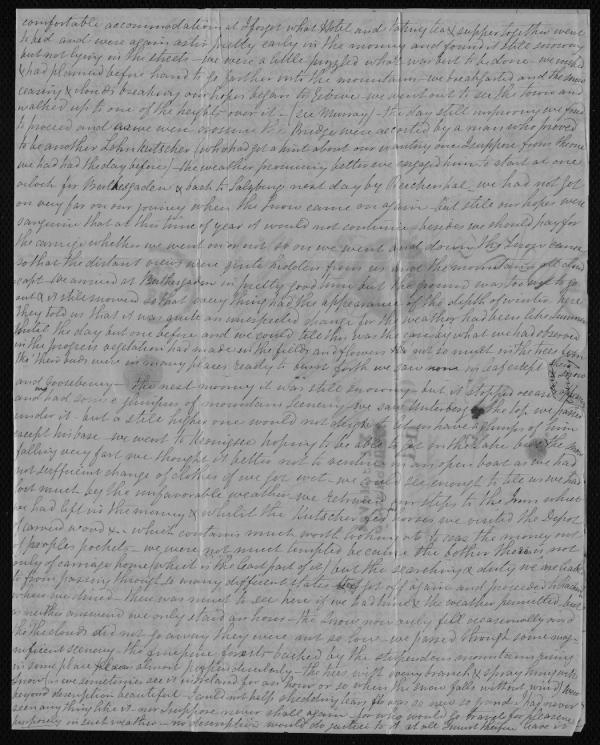 comfortable accommodation at I forget what Hotel and taking tea & supper together went
to bed and were again astir pretty early in the morning and found it still snowing
but not lying in the streets – we were a little puzzled what was best to be done – we wished
& had planned before hand to go farther into the mountains – we breakfasted and the snow
ceasing & clouds breaking our hopes began to revive we went out to see the town and
walked up to one of the heights over it – (see Murray) – the day still improving we
to proceed and as we were crossing the bridge were accosted by a man who proved
to be another Lohnkutscher (who had got a hint about our wanting one I suppose from the one
we had had the day before) – the weather promising better we engaged him to start at one
o'clock for Berchtesgaden & back to Salzburg next day by Reichenhal – we had not got
on very far on our journey when the snow came on again – but still our hopes were
sanguine that at this time of year it would not continue besides we should pay for
the carriage whether we went on or not so on we went and down the snow came
so that the distant views were quite hidden from us and the mountains all cloud
capt – we arrived at Berchtesgaden in pretty good time but the ground was too wet to go
out & it still snowed so that every thing had the appearance of the depth of winter here
they told us that it was quite an unexpected change for the weather had been like summer
until the day but one before and we could tell this was the case by what we had observed
in the progress vegetation had made in the fields and flowers tho' not so much in the trees
tho' the buds were in many places ready to burst forth we saw none in leaf except
and Gooseberry – the next morning it was still snowing but it stopped occasionally
and had some glimpses of mountain scenery we saw Unterberg to the top we passed
under it – but a still higher one would not deign to let us have a glimpse of him
except his base – we went to Konigsee hoping to be able to get on the lake but the snow
falling very fast we thought it better not to venture in an open boat as we had
not sufficient change of clothes if we got wet – we could see enough to tell us we had
lost much by the unfavorable weather – we retraced our steps to the Inn which
we had left in the morning & whilst the Kutscher his horses we visited the Depot
of carved wood &c – which contains much worth looking at & was the money out
of peoples pockets – we were not much tempted because the bother there is not
only of carriage home (which is the least part of it) but the searching & duty we are liable
to from passing through so many different states got off again and proceeded to Reichenhal
where we dined – there was much to see here if we had time & the weather permitted, but
as neither answered we only staid an hour – the snow now only fell occasionally and
tho the clouds did not go away they were not so low – we passed through some mag-
nificent scenery – the fine pine forests backed by the stupendous mountains rising
in some places almost perpendicularly – the trees with every branch & spray hung with
snow (as we sometimes see it in Ireland for an hour or so when the snow falls without wind) were
beyond description beautiful – I could not help shedding tears for it was so new so grand I had never
seen any thing like it – nor I suppose never shall again – for who would go travel for pleasure
purposely in such weather – no description would do justice to it at all I must therefore leave it